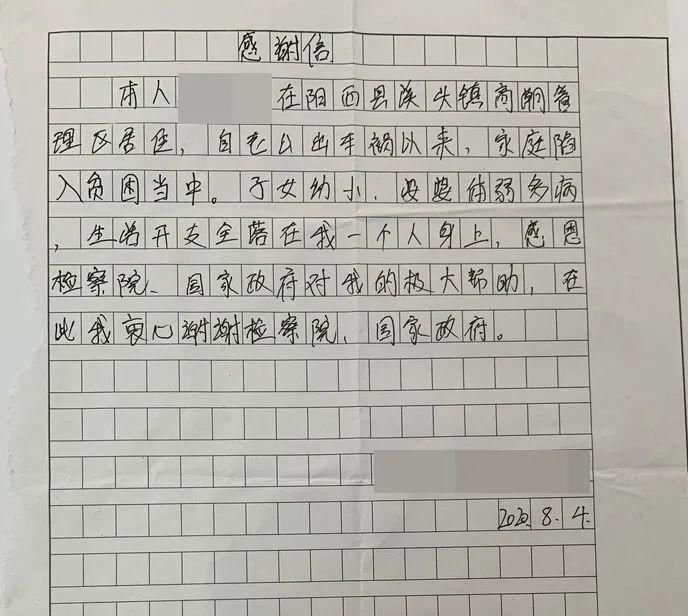 感谢信
本人 在阳西县溪头镇商朗管
理区居住，自老公出车祸以来，家庭陷
入贫困当中。子女幼小，婆婆体弱多病
，生活开支全落在我一个人身上，感恩
检察院、国家政府对我的极大帮助，在
此我衷心谢谢检察院、国家政府。
2020.8.4.